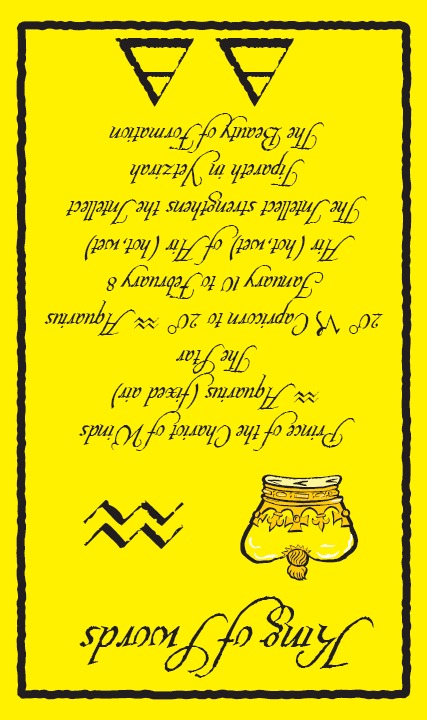 King of Swords
Prince of the Chariot of Winds
♒ Aquarius (fixed air)
The Star
20° ♑ Capricorn to 20° ♒ Aquarius
January 10 to February 8
Air (hot, wet) of Air (hot, wet)
The Intellect strengthens the Intellect
Tipareth in Yetzirah
The Beauty of Formation